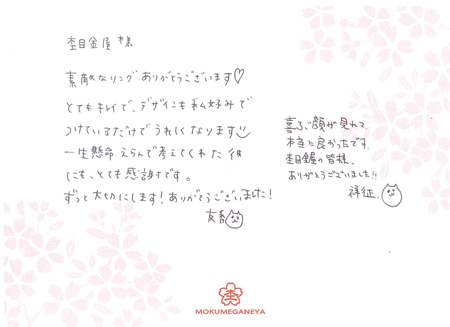 杢目金屋 様
素敵なリングありがとうございます♡
とてもキレイで、デザインも私好みで
つけているだけでうれしくなります
一生懸命えらんで考えてくれた彼
にも、とても感謝です。
ずっと大切にします!ありがとうございました!
友香
喜ぶ顔が見れて
本当に良かったです。
杢目金屋の皆様、
ありがとうございました!!
祥征
MOKUMEGANEYA